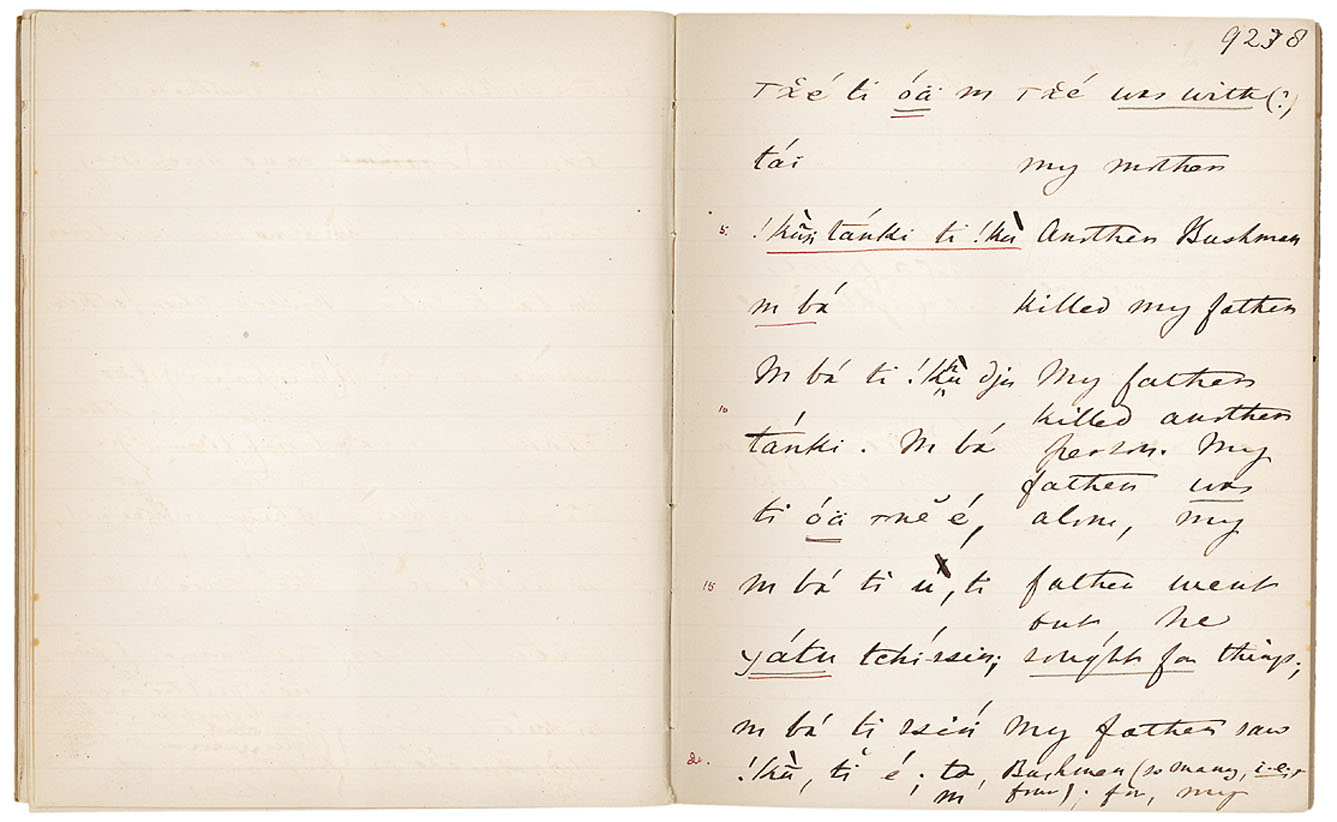 9238
Txé ti óä m Txé was with (?)
tái my mother
5. !kùṅ tánki ti !kù Another Bushman
m bá killed my father
M bá ti !kù dju My father
10 killed another
tánki. M bá person. My
father was
ti óä é, alone, my
15 m bá ti ù, ti father went
out he
yátu tchí-ssin; sought for things;
m bá ti ssin My father saw
!kù, tí é; ta, Bushmen (so many, i.e.,
m four); for, my